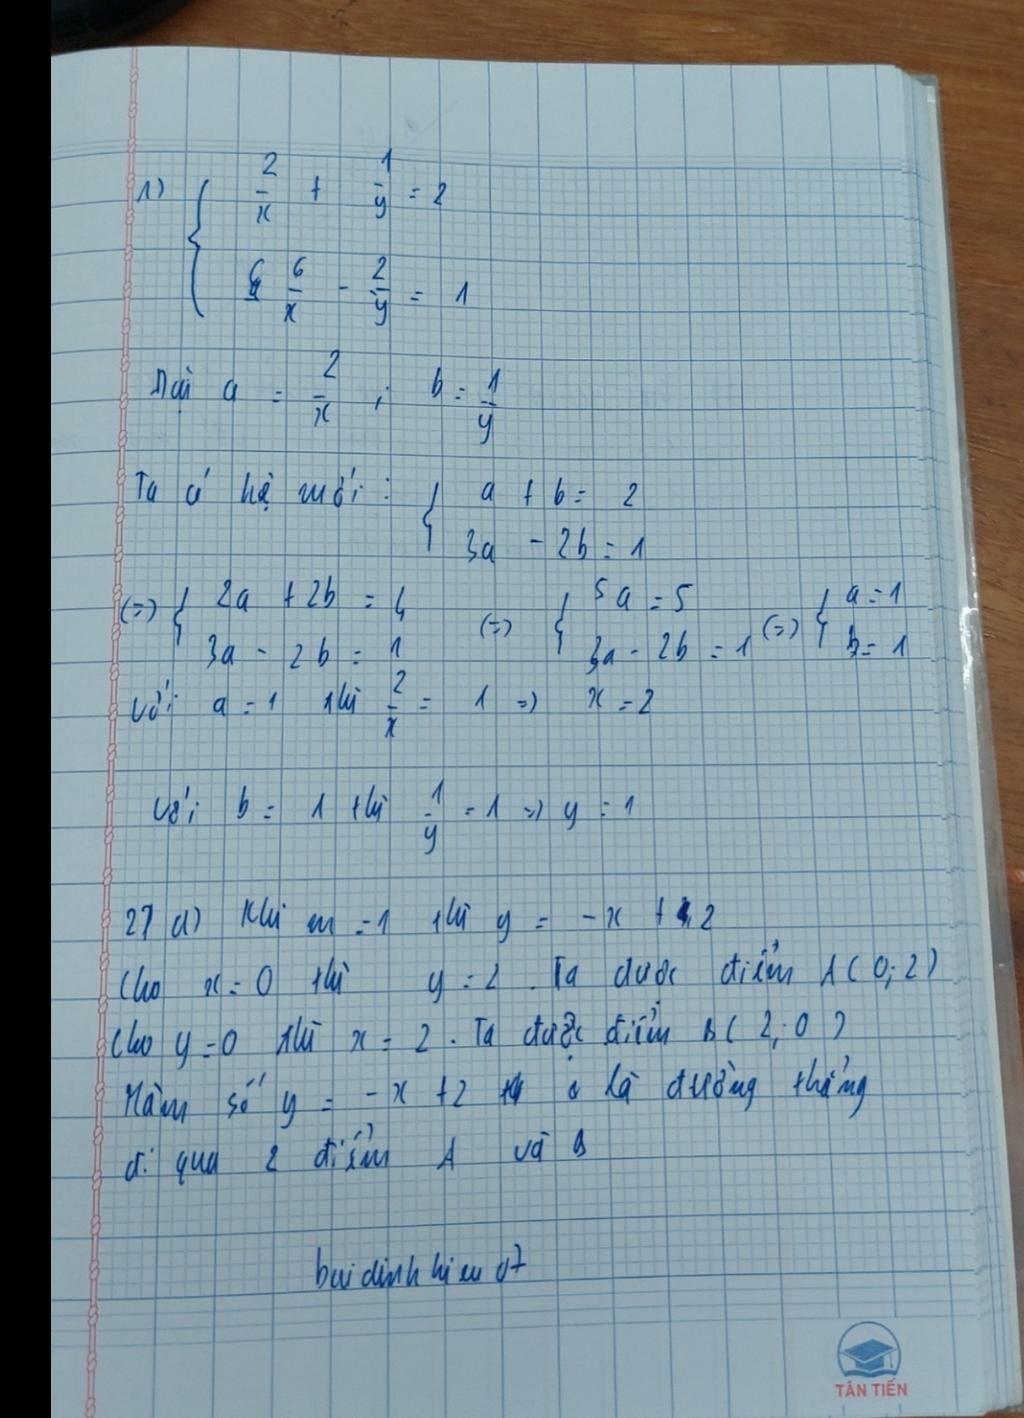 1) { 2/x + 1/y = 2
6/x - 2/y = 1
a = 2/x ; b = 1/y
Ta có hệ mới: { a + b = 2
3a - 2b = 1
(=) { 2a + 2b = 4 (=) { 5a = 5 (=) { a = 1
3a - 2b = 1 3a - 2b = 1 b = 1
với a = 1 thì 2/x = 1 =) x = 2
với b = 1 thì 1/y = 1 =) y = 1
27 a) Khi m = 1 thì y = -x + 2
Cho x = 0 thì y = 2 . Ta được điểm A ( 0; 2 )
Cho y = 0 thì x = 2 . Ta được điểm B ( 2; 0 )
Hàm số y = -x + 2 là đường thẳng
đi qua 2 điểm A và B
bui dinh hieu
TÂN TIẾN